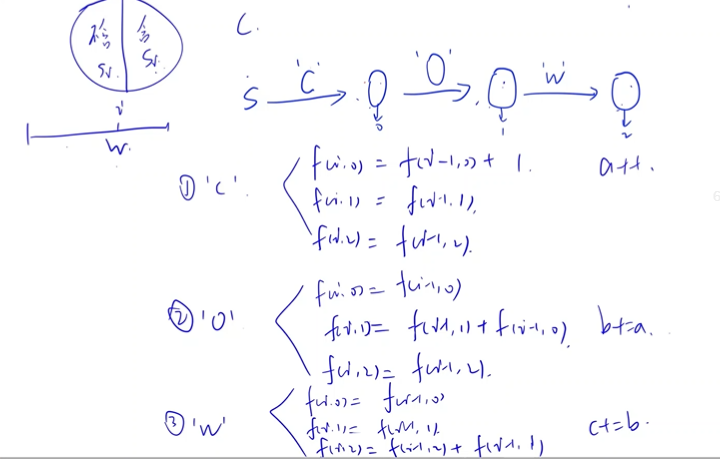 不含 | 含
Si. | Si.
C.
i
W.
S 'C' → 'O' → 'W' →
0 1 2
① 'C'. f(i,0) = f(i-1,0) + 1. a++.
f(i,1) = f(i-1,1).
f(i,2) = f(i-1,2).
② 'O' f(i,0) = f(i-1,0)
f(i,1) = f(i-1,1) + f(i-1,0). b+=a.
f(i,2) = f(i-1,2).
③ 'W' f(i,0) = f(i-1,0)
f(i,1) = f(i-1,1).
f(i,2) = f(i-1,2) + f(i-1,1) c+=b.